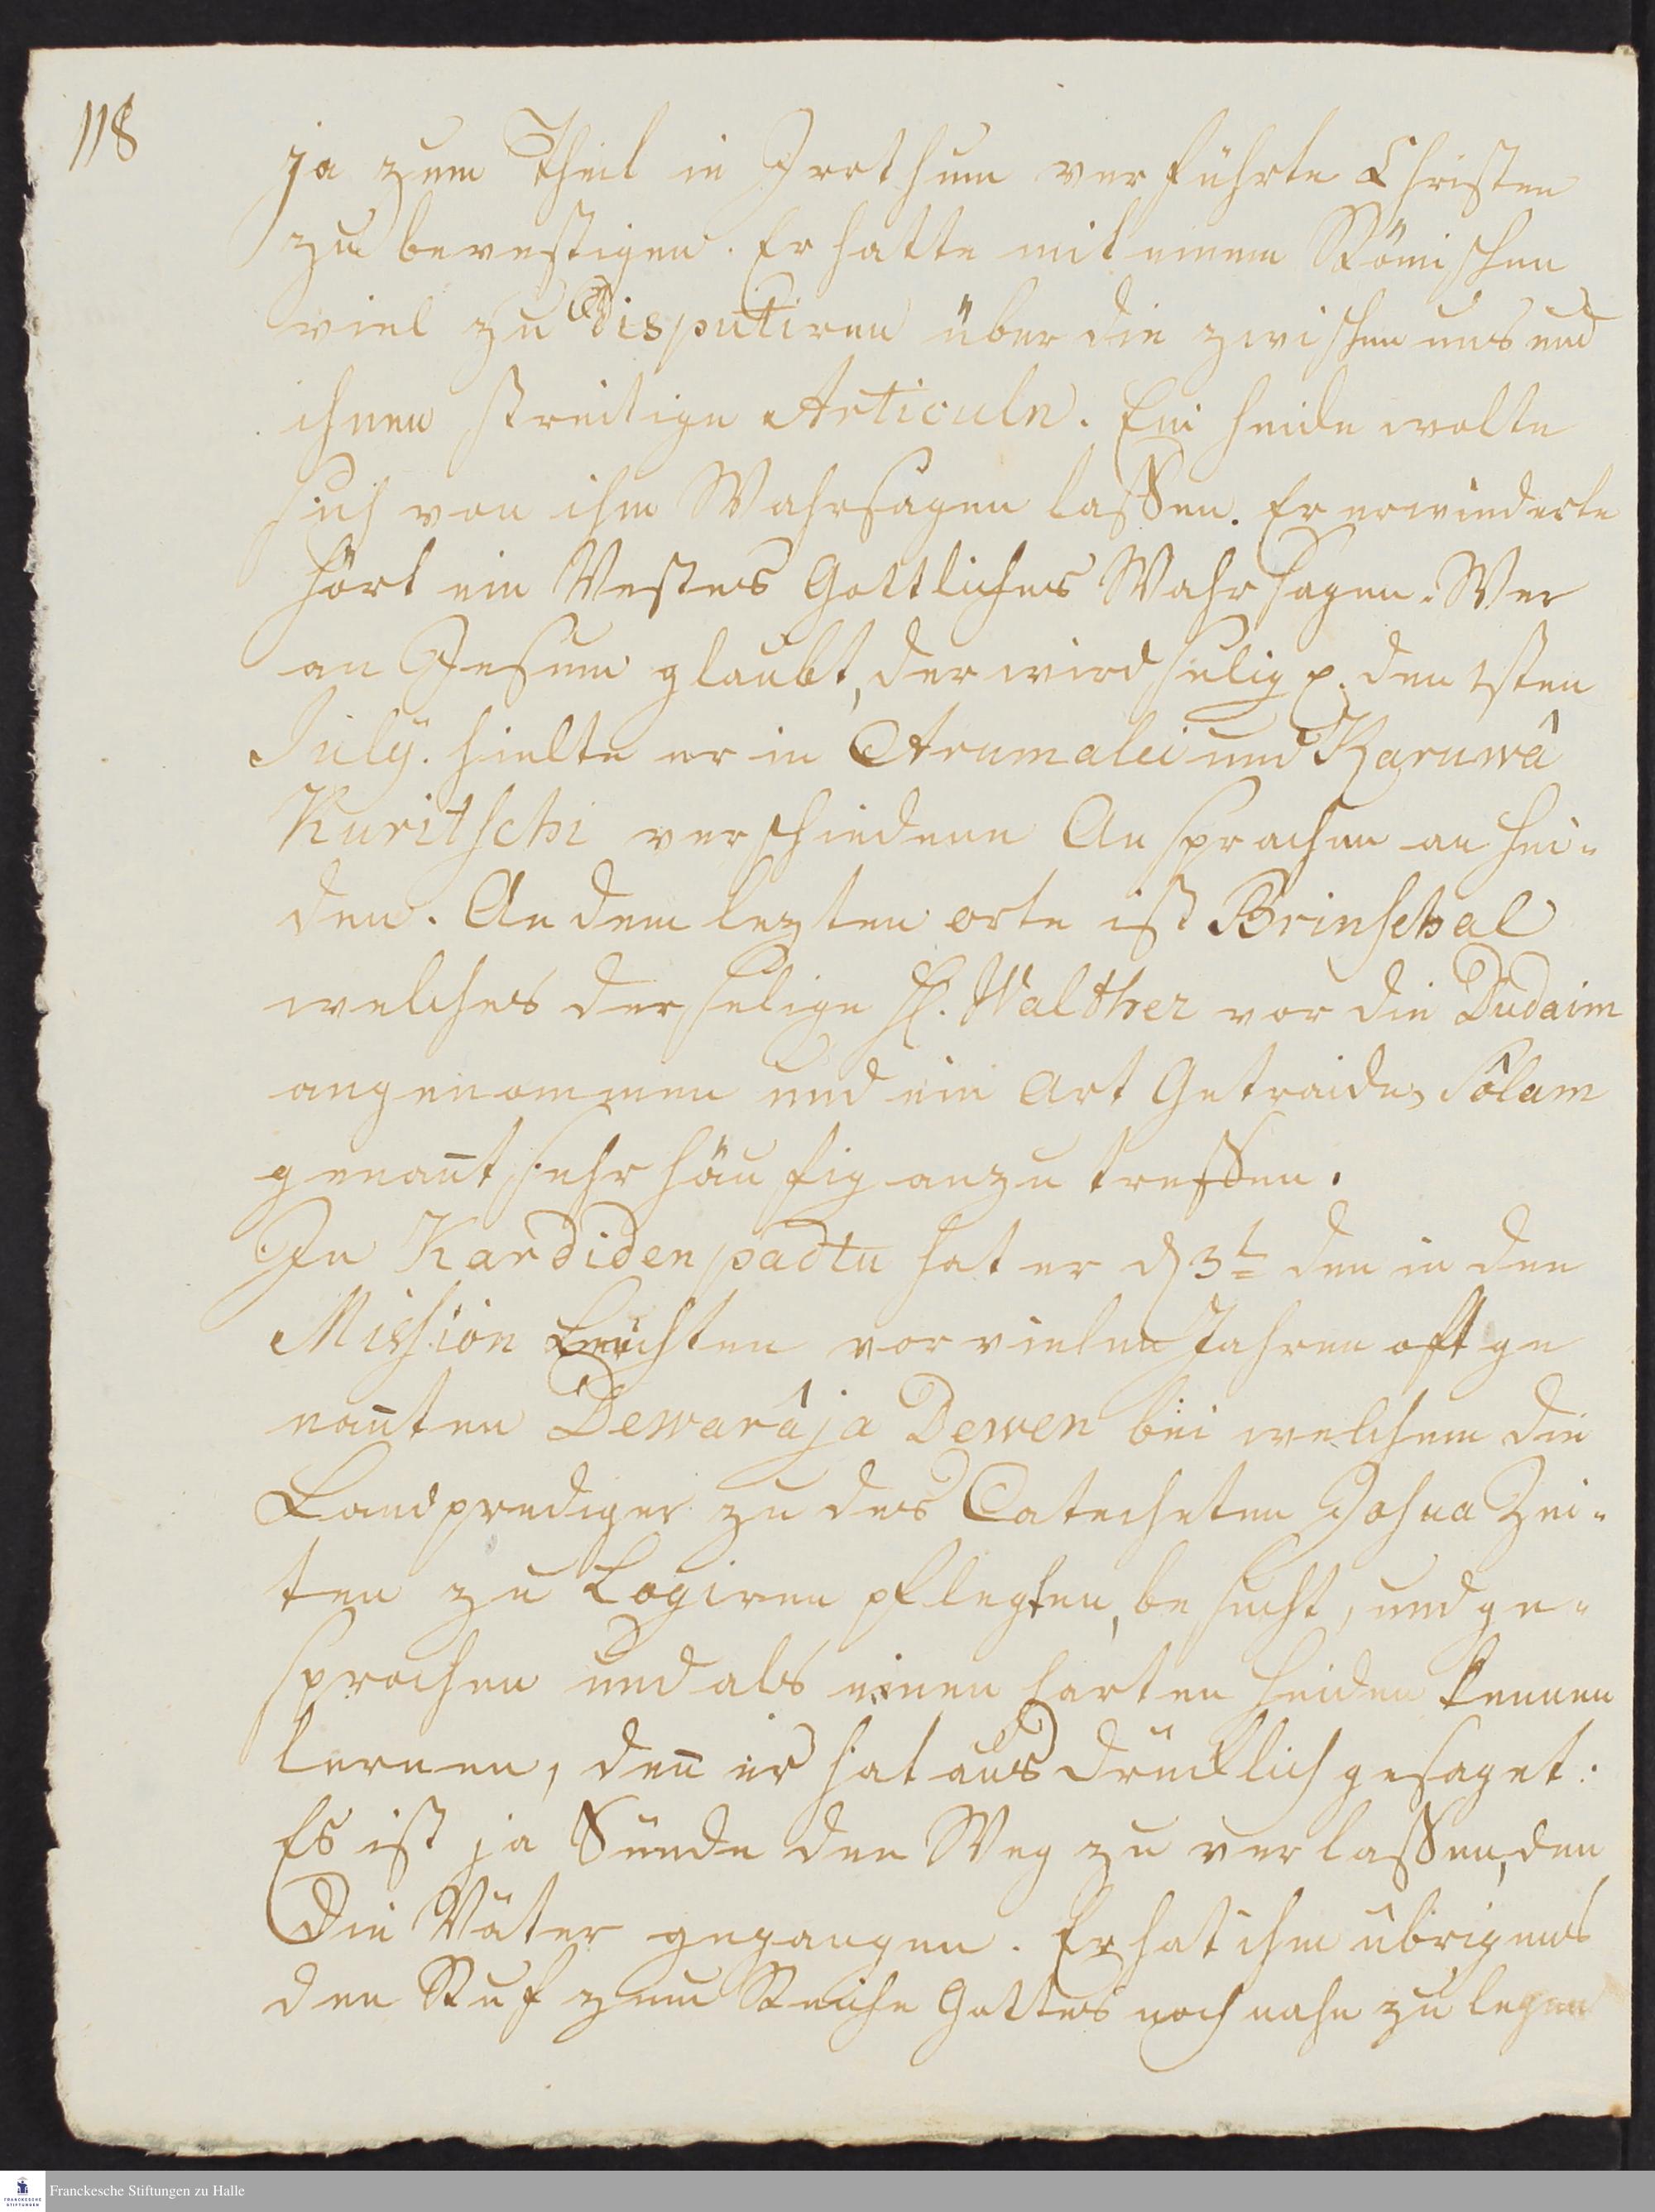 118
ja zum Theil in Irrthum verführte Christen
zu bevestigen. Er hatte mit einem Römischen
viel zu disputiren über die zwischen uns und
ihnen streitige Articuln. Ein Heide wolte
sich von ihm Wahrsagen laßen. Er erwiederte
hört ein Vestes Gottliches Wahrsagen. Wer
an Jesum glaubt, der wird selig p. den 1sten
July. hielte er in Arumalei und Karuwâ
Kuritschi verschiedene Ansprachen an Hei-
den. An dem lezten orte ist Brinschal
welches der selige H. Walther vor die Dudaim
angenommen und ein Art Getraide, Sôlam
genañt sehr häufig anzutreffen.
In Kardidenpadtu hat er d 3t den in den
Mission Berichten vor vielen Jahren oft ge
nañten Dewarâja Dewen bei welchem die
Landprediger zu des Catecheten Josua Zei-
ten zu Logiren pflegten, besucht, und ge-
sprochen und als einen harten Heiden kennen
lernen, deñ er hat ausdrücklich gesaget:
Es ist ja Sünde den Weg zu verlaßen, den
Die Väter gegangen. Er hat ihm übrigens
den Ruf zum Reiche Gottes noch nahe zu legen
Franckesche Stiftungen zu Halle
FRANCKESCHE
STIFTUNGEN